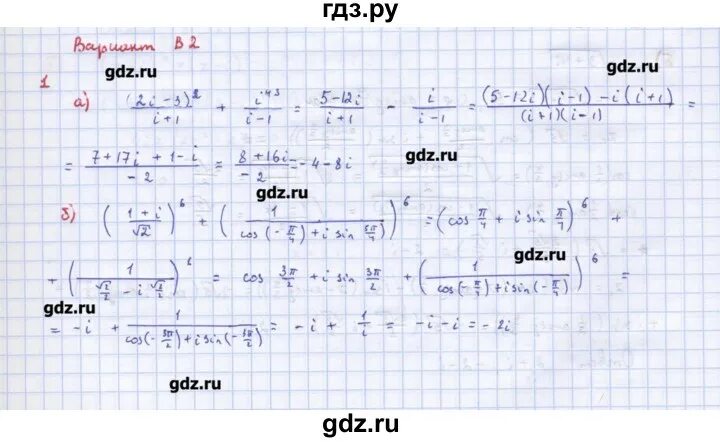 гдз.ру
Вариант В2
gdz.ru
gdz.ru
1
а) (2i-3)²/(i+1) + i⁴³/(i-1) = (5-12i)/(i+1) - i/(i-1) = ((5-12i)(i-1) - i(i+1))/((i+1)(i-1)) =
= (7+17i+1-i)/(-2) = (8+16i)/(-2) = -4-8i
gdz.ru
gdz.ru
б) ((1+i)/√2)⁶ + (1/(cos(-π/4) + i sin 5π/4))⁶ = (cos π/4 + i sin π/4)⁶ +
gdz.ru
+ (1/(√2/2 - i √2/2))⁶ = cos 3π/2 + i sin 3π/2 + (1/(cos(-π/4) + i sin(-π/4)))⁶ =
gdz.ru
= -i + 1/(cos(-3π/2) + i sin(-3π/2)) = -i + 1/i = -i-i = -2i
gdz.ru
gdz.ru